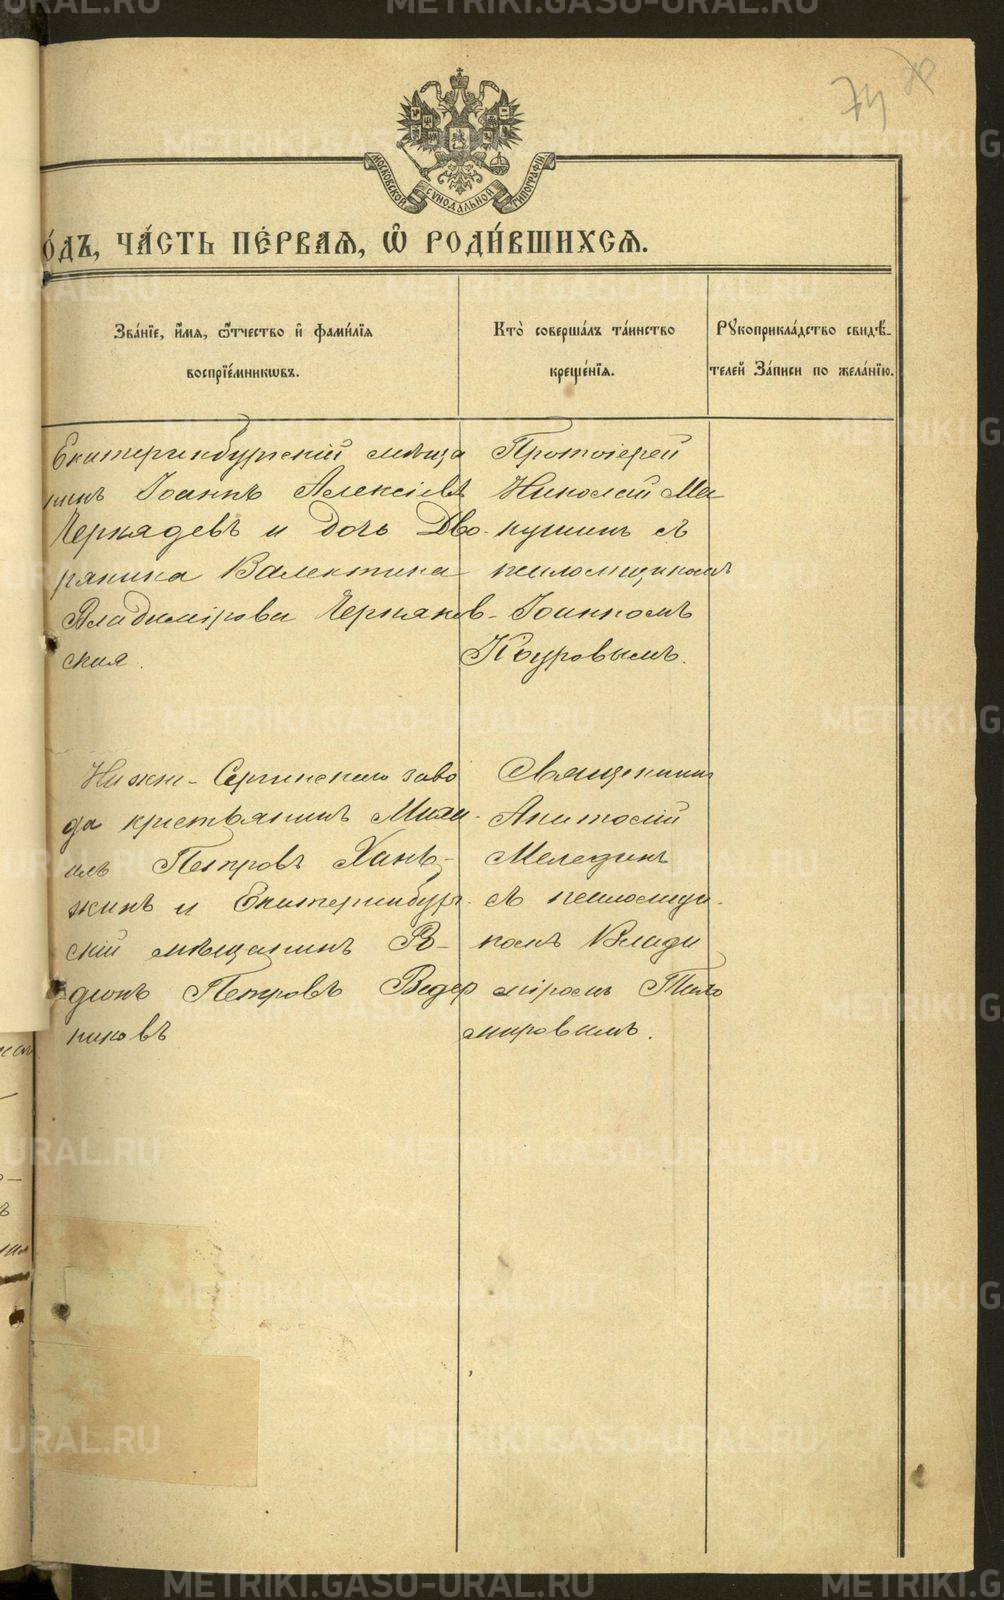 74
МОСКОВСКОЙ СѴНОДАЛЬНОЙ ТИПОГРАФІИ
о́дъ, ча́сть пе́рваѧ, ѡ҆ роди́вшихсѧ.
Зва́нїе, и҆́мѧ, ѻ҆́тчество и҆ фами́лїѧ
воспрїе́мникѡвъ.
Кто̀ соверша́лъ та́инство
креще́нїѧ.
Рꙋкоприкла́дство свидѣ́-
телей За́писи по жела́нїю.
Екатеринбургскій мѣща
нинъ Іоаннъ Алексіевъ
Чернядевъ и дочь Дво-
рянина Валентина
Владимірова Черняков-
ская.
Протоіерей
Николай Ма
кушинъ съ
псаломщикомъ
Іоанномъ
Коуровымъ.
Нижне-Сергинскаго заво
да крестьянинъ Миха-
илъ Петровъ Хане-
жинъ и Екатеринбург-
скій мѣщанинъ Ро-
діонъ Петровъ Ведер
никовъ
Священникъ
Анатолій
Меледин
съ псаломщи-
комъ Влади
міромъ Тихо
мировымъ.
METRIKI.GASO-URAL.RU